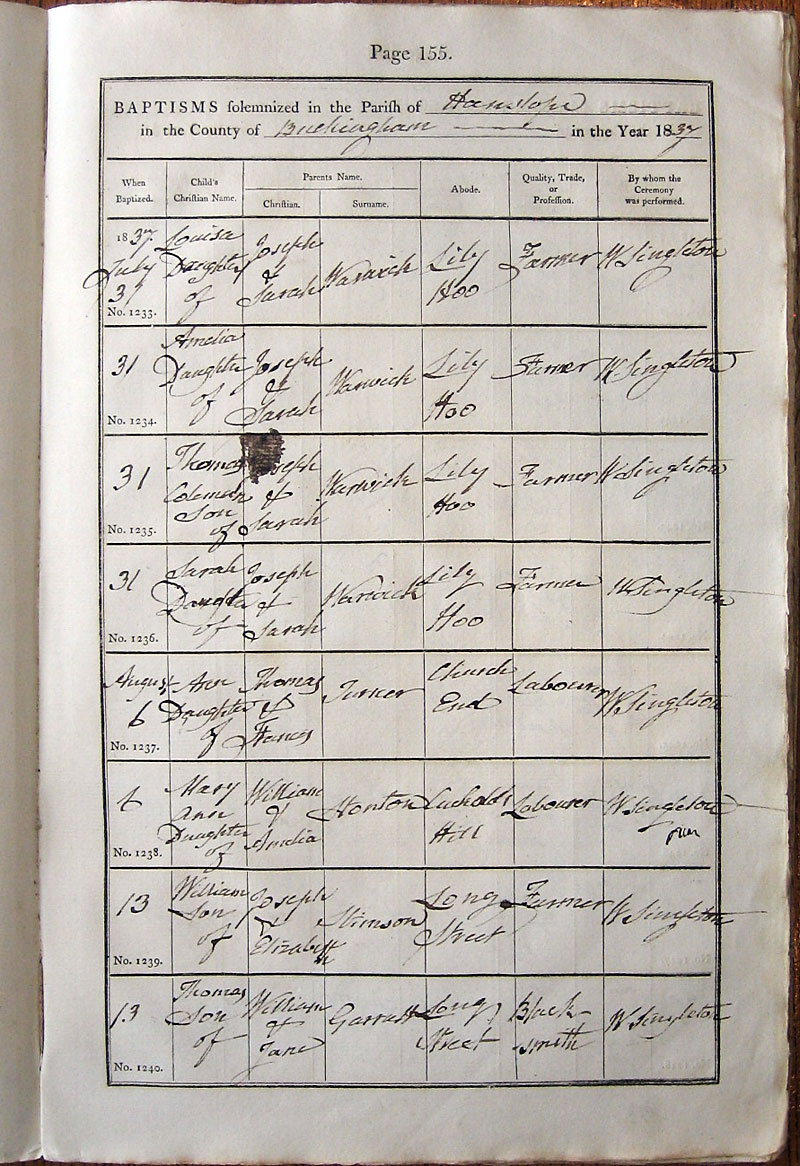 Page 155.
BAPTISMS solemnized in the Parish of Hanslope
in the County of Buckingham in the Year 1837
When Baptized. Child's Christian Name. Parents Name. Christian. Surname. Abode. Quality, Trade, or Profession. By whom the Ceremony was performed.
1837 Louisa Joseph
July Daughter & Warwick Lily Farmer W Singleton
31 of Sarah Hoo
No. 1233.
Amelia
31 Daughter Joseph Warwick Lily Farmer W Singleton
of & Sarah Hoo
No. 1234.
Thomas Joseph
31 Coleman & Warwick Lily Farmer W Singleton
Son of Sarah Hoo
No. 1235.
31 Sarah Joseph Lily Farmer
Daughter & Warwick W Singleton
of Sarah Hoo
No. 1236.
August Ann Thomas Church Labourer
6 Daughter & Turner End W Singleton
of Frances
No. 1237.
Mary William
6 Ann & Honton Hill Labourer W Singleton
Daughter of Amelia
No. 1238.
William Joseph Long Farmer
13 Son & Stimson Street W Singleton
of Elizabeth
No. 1239.
Thomas William Long Black-
13 Son & Garratt Street smith W Singleton
of Jane
No. 1240.